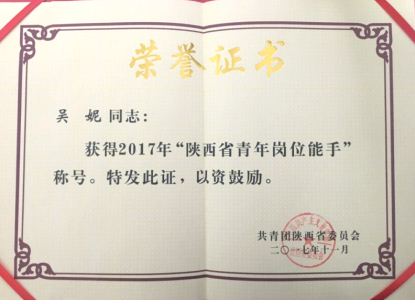 荣誉证书
吴 妮 同志：
获得2017年“陕西省青年岗位能手”
称号。特发此证，以资鼓励。
共青团陕西省委员会
二〇一七年十一月